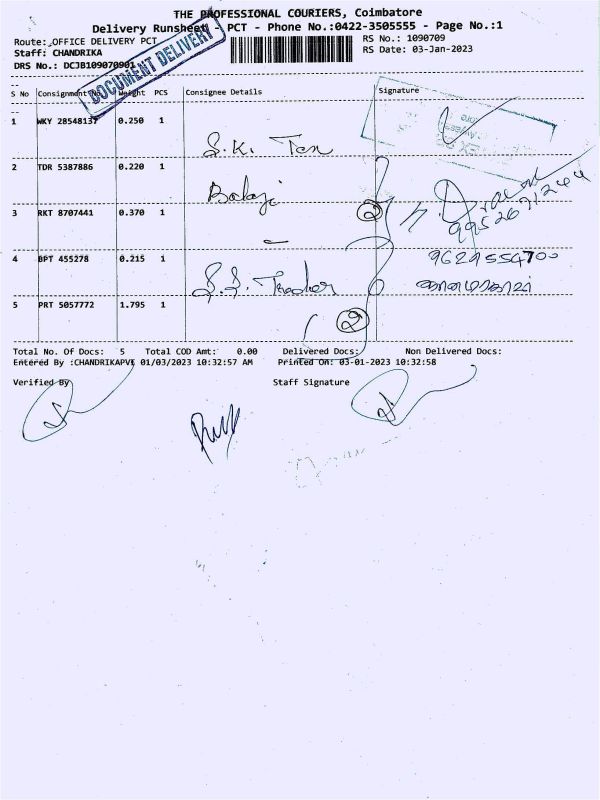 THE PROFESSIONAL COURIERS, Coimbatore
Delivery Runsheet - PCT - Phone No.:0422-3505555 - Page No.:1
Route: OFFICE DELIVERY PCT
RS No.: 1090709
Staff: CHANDRIKA
RS Date: 03-Jan-2023
DRS No.: DCJB109070901
DOCUMENT DELIVERY
S No Consignment No Weight PCS Consignee Details Signature
1 WKY 28548137 0.250 1
S.K. Tex
2 TDR 5387886 0.220 1
Balaji
3 RKT 8707441 0.370 1 2
9952671244
4 BPT 455278 0.215 1
S.S. Trader
9629554700
5 PRT 5057772 1.795 1
2
Total No. Of Docs: 5 Total COD Amt: 0.00 Delivered Docs: Non Delivered Docs:
Entered By :CHANDRIKAPVK 01/03/2023 10:32:57 AM Printed On: 03-01-2023 10:32:58
Verified By Staff Signature